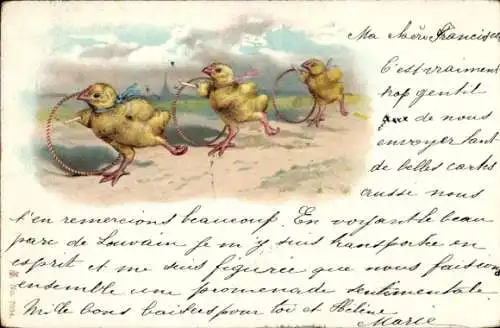 Ma Mère Francisca
C'est vraiment
trop gentil
que de nous
envoyer tant
de belles cartes
aussi nous
t'en remercions beaucoup. En voyant le beau
parc de Louvain je m'y suis transportée en
esprit et me suis figurée que nous faisions
ensemble une promenade sentimentale
Mille bons baisers pour toi et Hélène
Marie